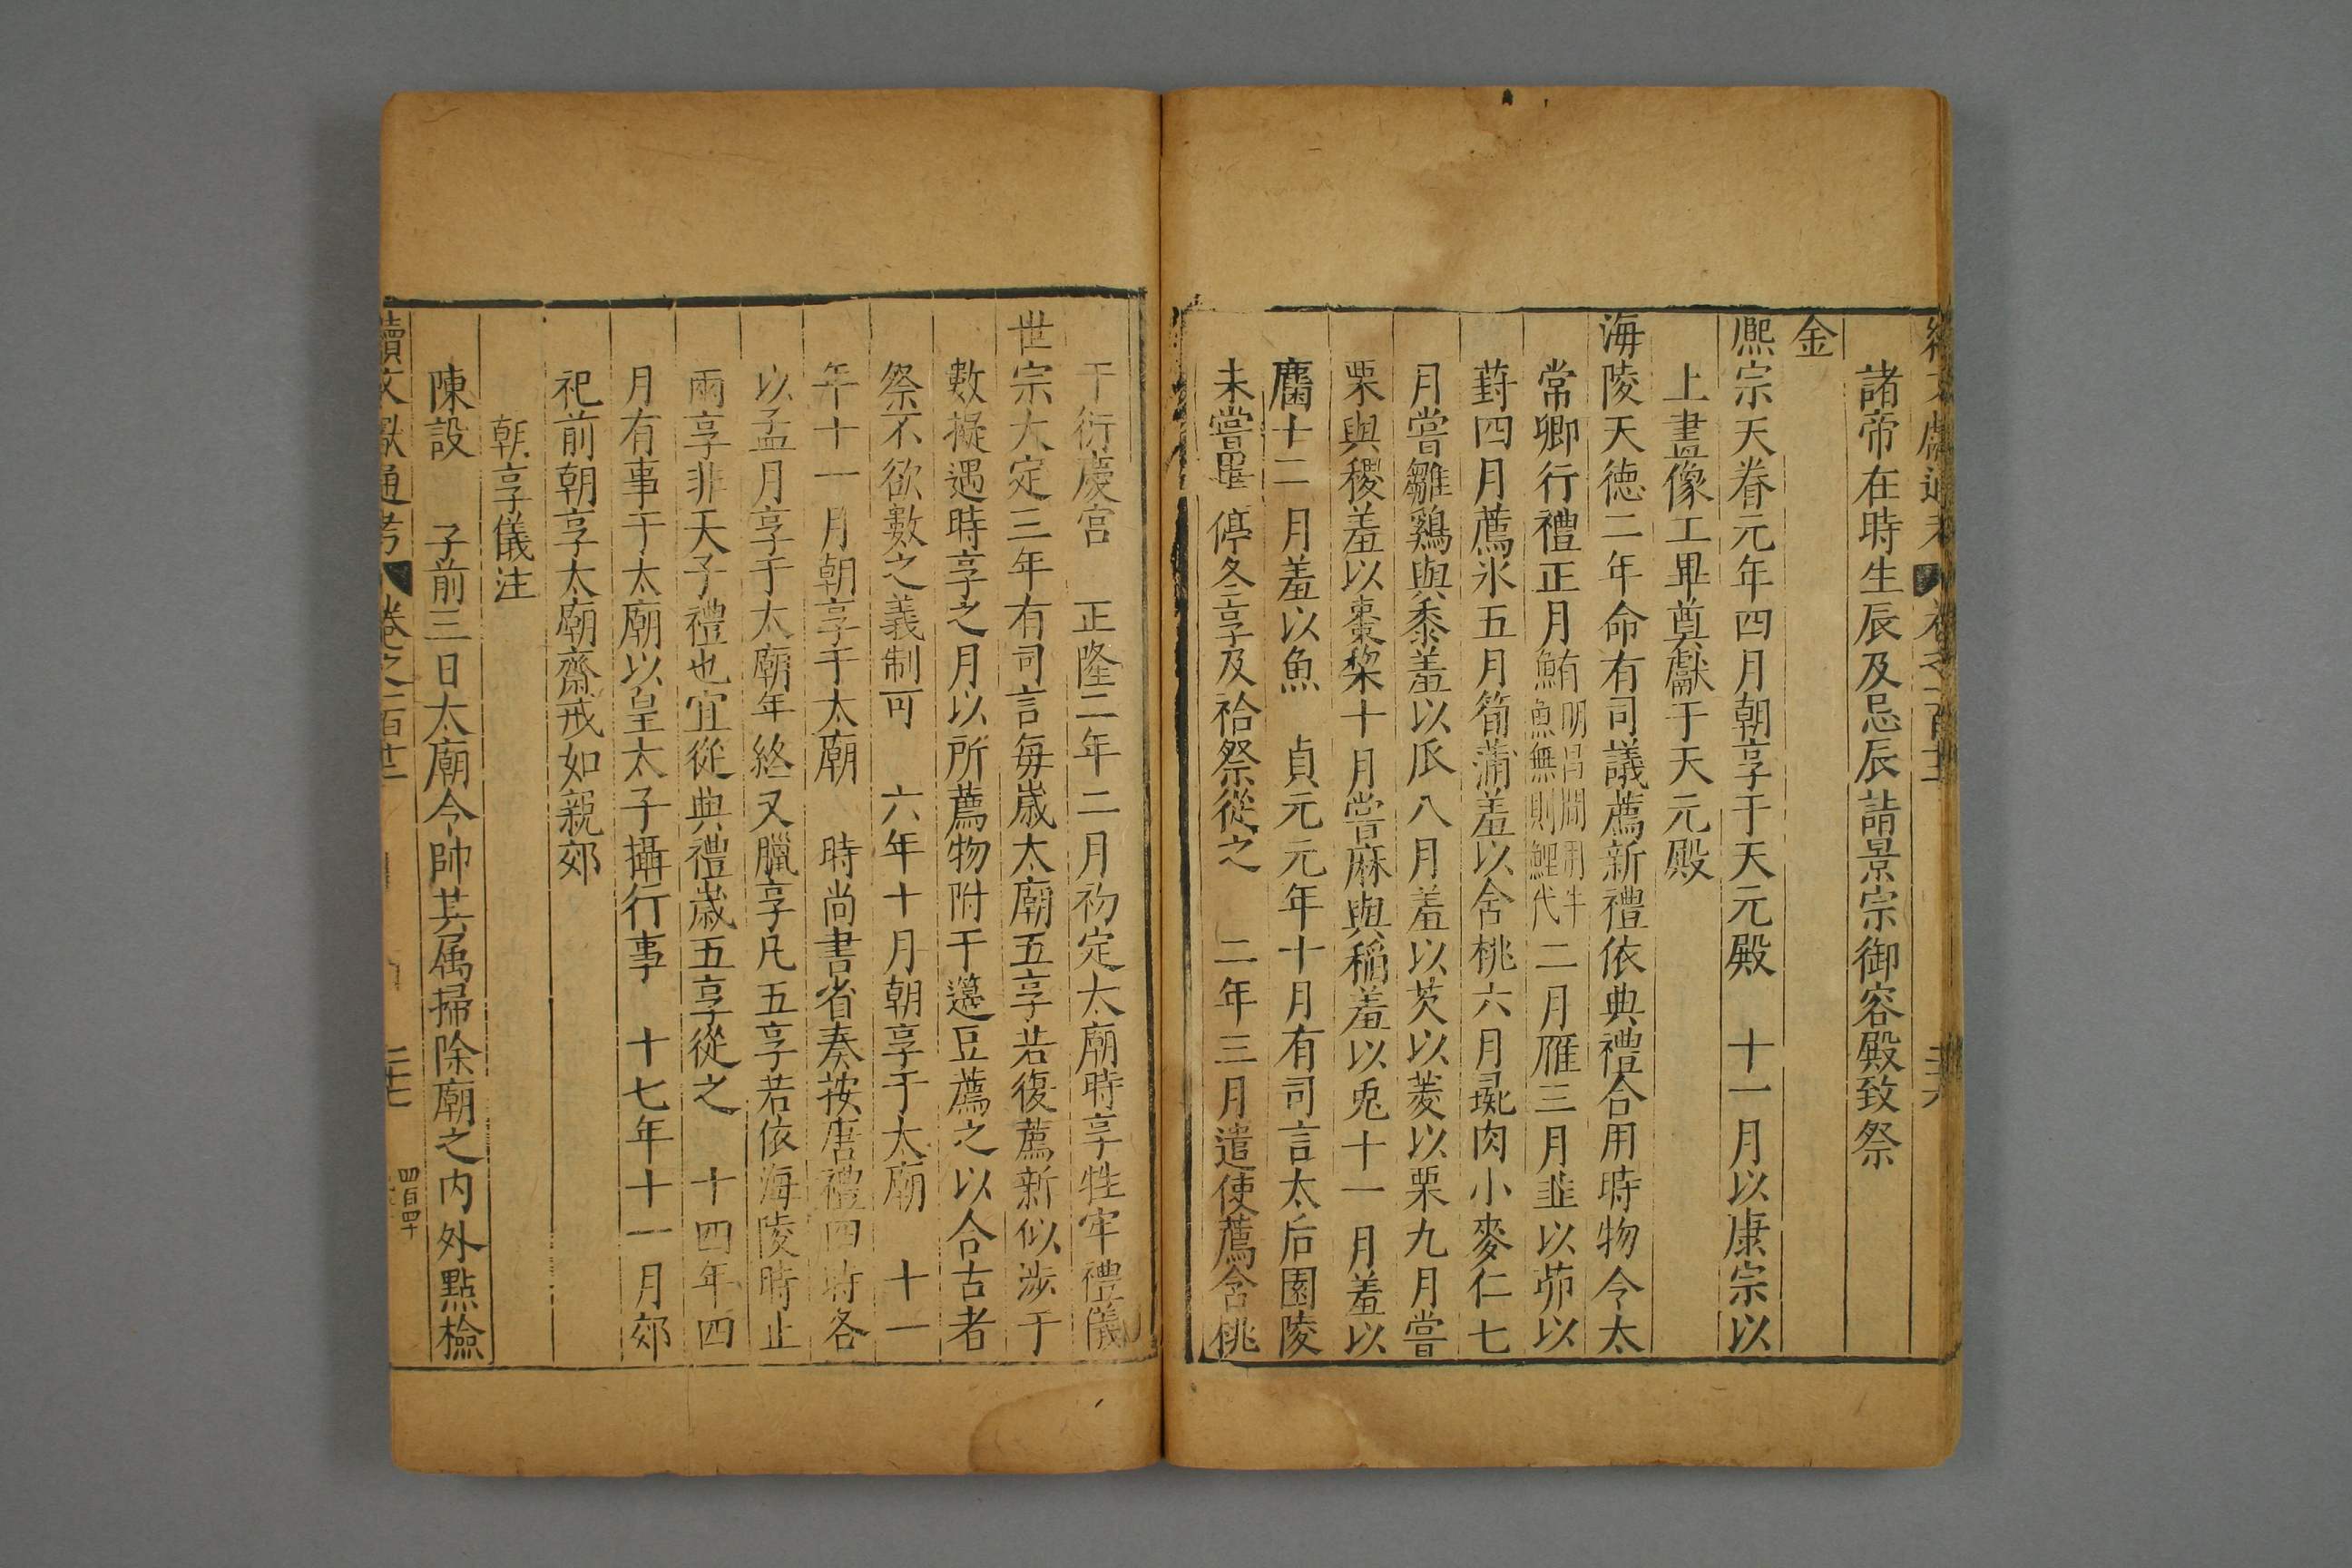 諸帝在時生辰及忌辰請景宗御容殿致祭
金
熈宗天眷元年四月朝享于天元殿　十一月以康宗以
上畫像工畢奠獻于天元殿
海陵天德二年命有司議薦新禮依典禮合用時物令太
常卿行禮正月鮪明昌間用牛魚無則鯉代二月雁三月韭以茆以
葑四月薦氷五月筍蒲羞以含桃六月彘肉小麥仁七
月嘗雛鷄與黍羞以瓜八月羞以芡以菱以栗九月嘗
栗與稷羞以棗棃十月嘗麻與稻羞以兎十一月羞以
麕十二月羞以魚　貞元元年十月有司言太后園陵
未嘗畢停冬享及祫祭從之　二年三月遣使薦含桃
于衍慶宮　正隆二年二月初定太廟時享牲牢禮儀
世宗大定三年有司言每歳太廟五享若復薦新似涉于
數擬遇時享之月以所薦物附于籩豆薦之以合古者
祭不欲數之義制可　六年十月朝享于太廟　十一
年十一月朝享于太廟　時尚書省奏按唐禮四時各
以孟月享于太廟年終又臘享凡五享若依海陵時止
兩享非天子禮也宜從典禮歳五享從之　十四年四
月有事于太廟以皇太子攝行事　十七年十一月郊
祀前朝享太廟齋戒如親郊
朝享儀注
陳設　子前三日太廟令帥其属掃除廟之内外點檢
續文獻通考　卷之一百十二　三十七
四百四十